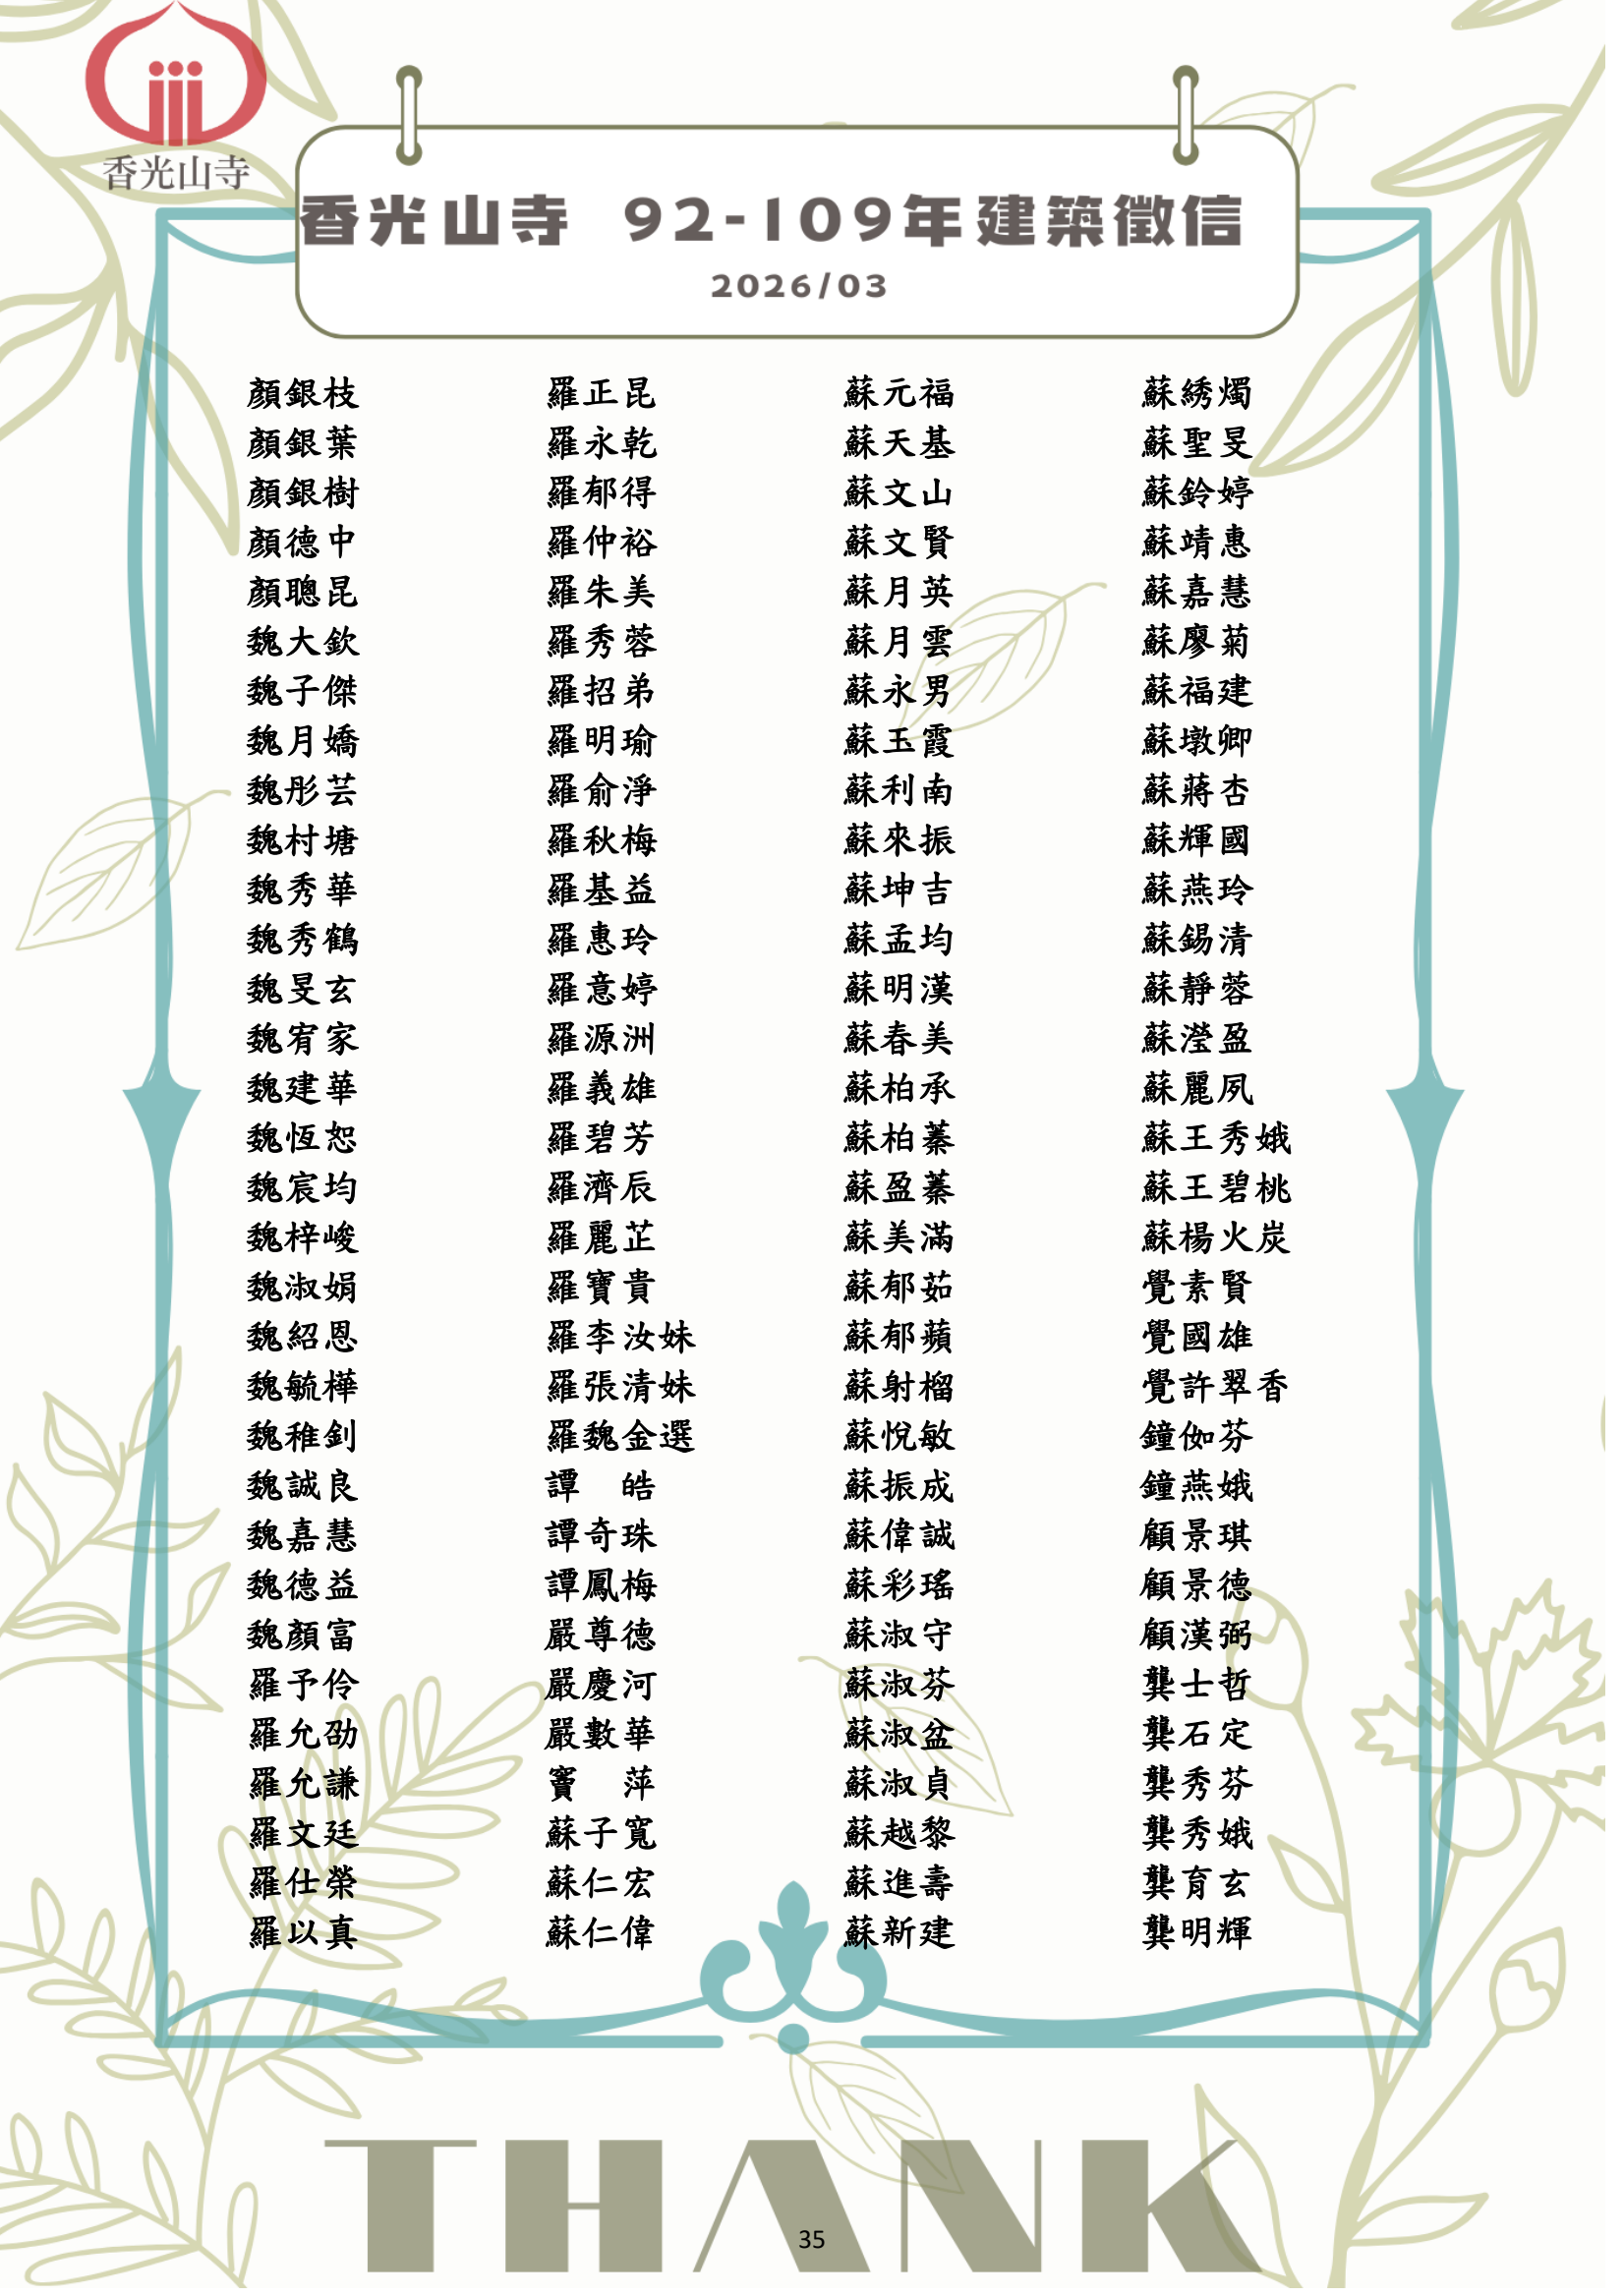 香光山寺
香光山寺 92-109年建築徵信
2026/03
顏銀枝 羅正昆 蘇元福 蘇綉燭
顏銀葉 羅永乾 蘇天基 蘇聖旻
顏銀樹 羅郁得 蘇文山 蘇鈴婷
顏德中 羅仲裕 蘇文賢 蘇靖惠
顏聰昆 羅朱美 蘇月英 蘇嘉慧
魏大欽 羅秀蓉 蘇月雲 蘇廖菊
魏子傑 羅招弟 蘇永男 蘇福建
魏月嬌 羅明瑜 蘇玉霞 蘇墩卿
魏彤芸 羅俞淨 蘇利南 蘇蔣杏
魏村塘 羅秋梅 蘇來振 蘇輝國
魏秀華 羅基益 蘇坤吉 蘇燕玲
魏秀鶴 羅惠玲 蘇孟均 蘇錫清
魏旻玄 羅意婷 蘇明漢 蘇靜蓉
魏宥家 羅源洲 蘇春美 蘇瀅盈
魏建華 羅義雄 蘇柏承 蘇麗夙
魏恆恕 羅碧芳 蘇柏蓁 蘇王秀娥
魏宸均 羅濟辰 蘇盈蓁 蘇王碧桃
魏梓峻 羅麗芷 蘇美滿 蘇楊火炭
魏淑娟 羅寶貴 蘇郁茹 覺素賢
魏紹恩 羅李汝妹 蘇郁蘋 覺國雄
魏毓樺 羅張清妹 蘇射榴 覺許翠香
魏稚釗 羅魏金選 蘇悅敏 鐘伽芬
魏誠良 譚 皓 蘇振成 鐘燕娥
魏嘉慧 譚奇珠 蘇偉誠 顧景琪
魏德益 譚鳳梅 蘇彩瑤 顧景德
魏顏富 嚴尊德 蘇淑守 顧漢弼
羅予伶 嚴慶河 蘇淑芬 龔士哲
羅允劭 嚴數華 蘇淑盆 龔石定
羅允謙 竇 萍 蘇淑貞 龔秀芬
羅文廷 蘇子寬 蘇越黎 龔秀娥
羅仕榮 蘇仁宏 蘇進壽 龔育玄
羅以真 蘇仁偉 蘇新建 龔明輝
THANK
35